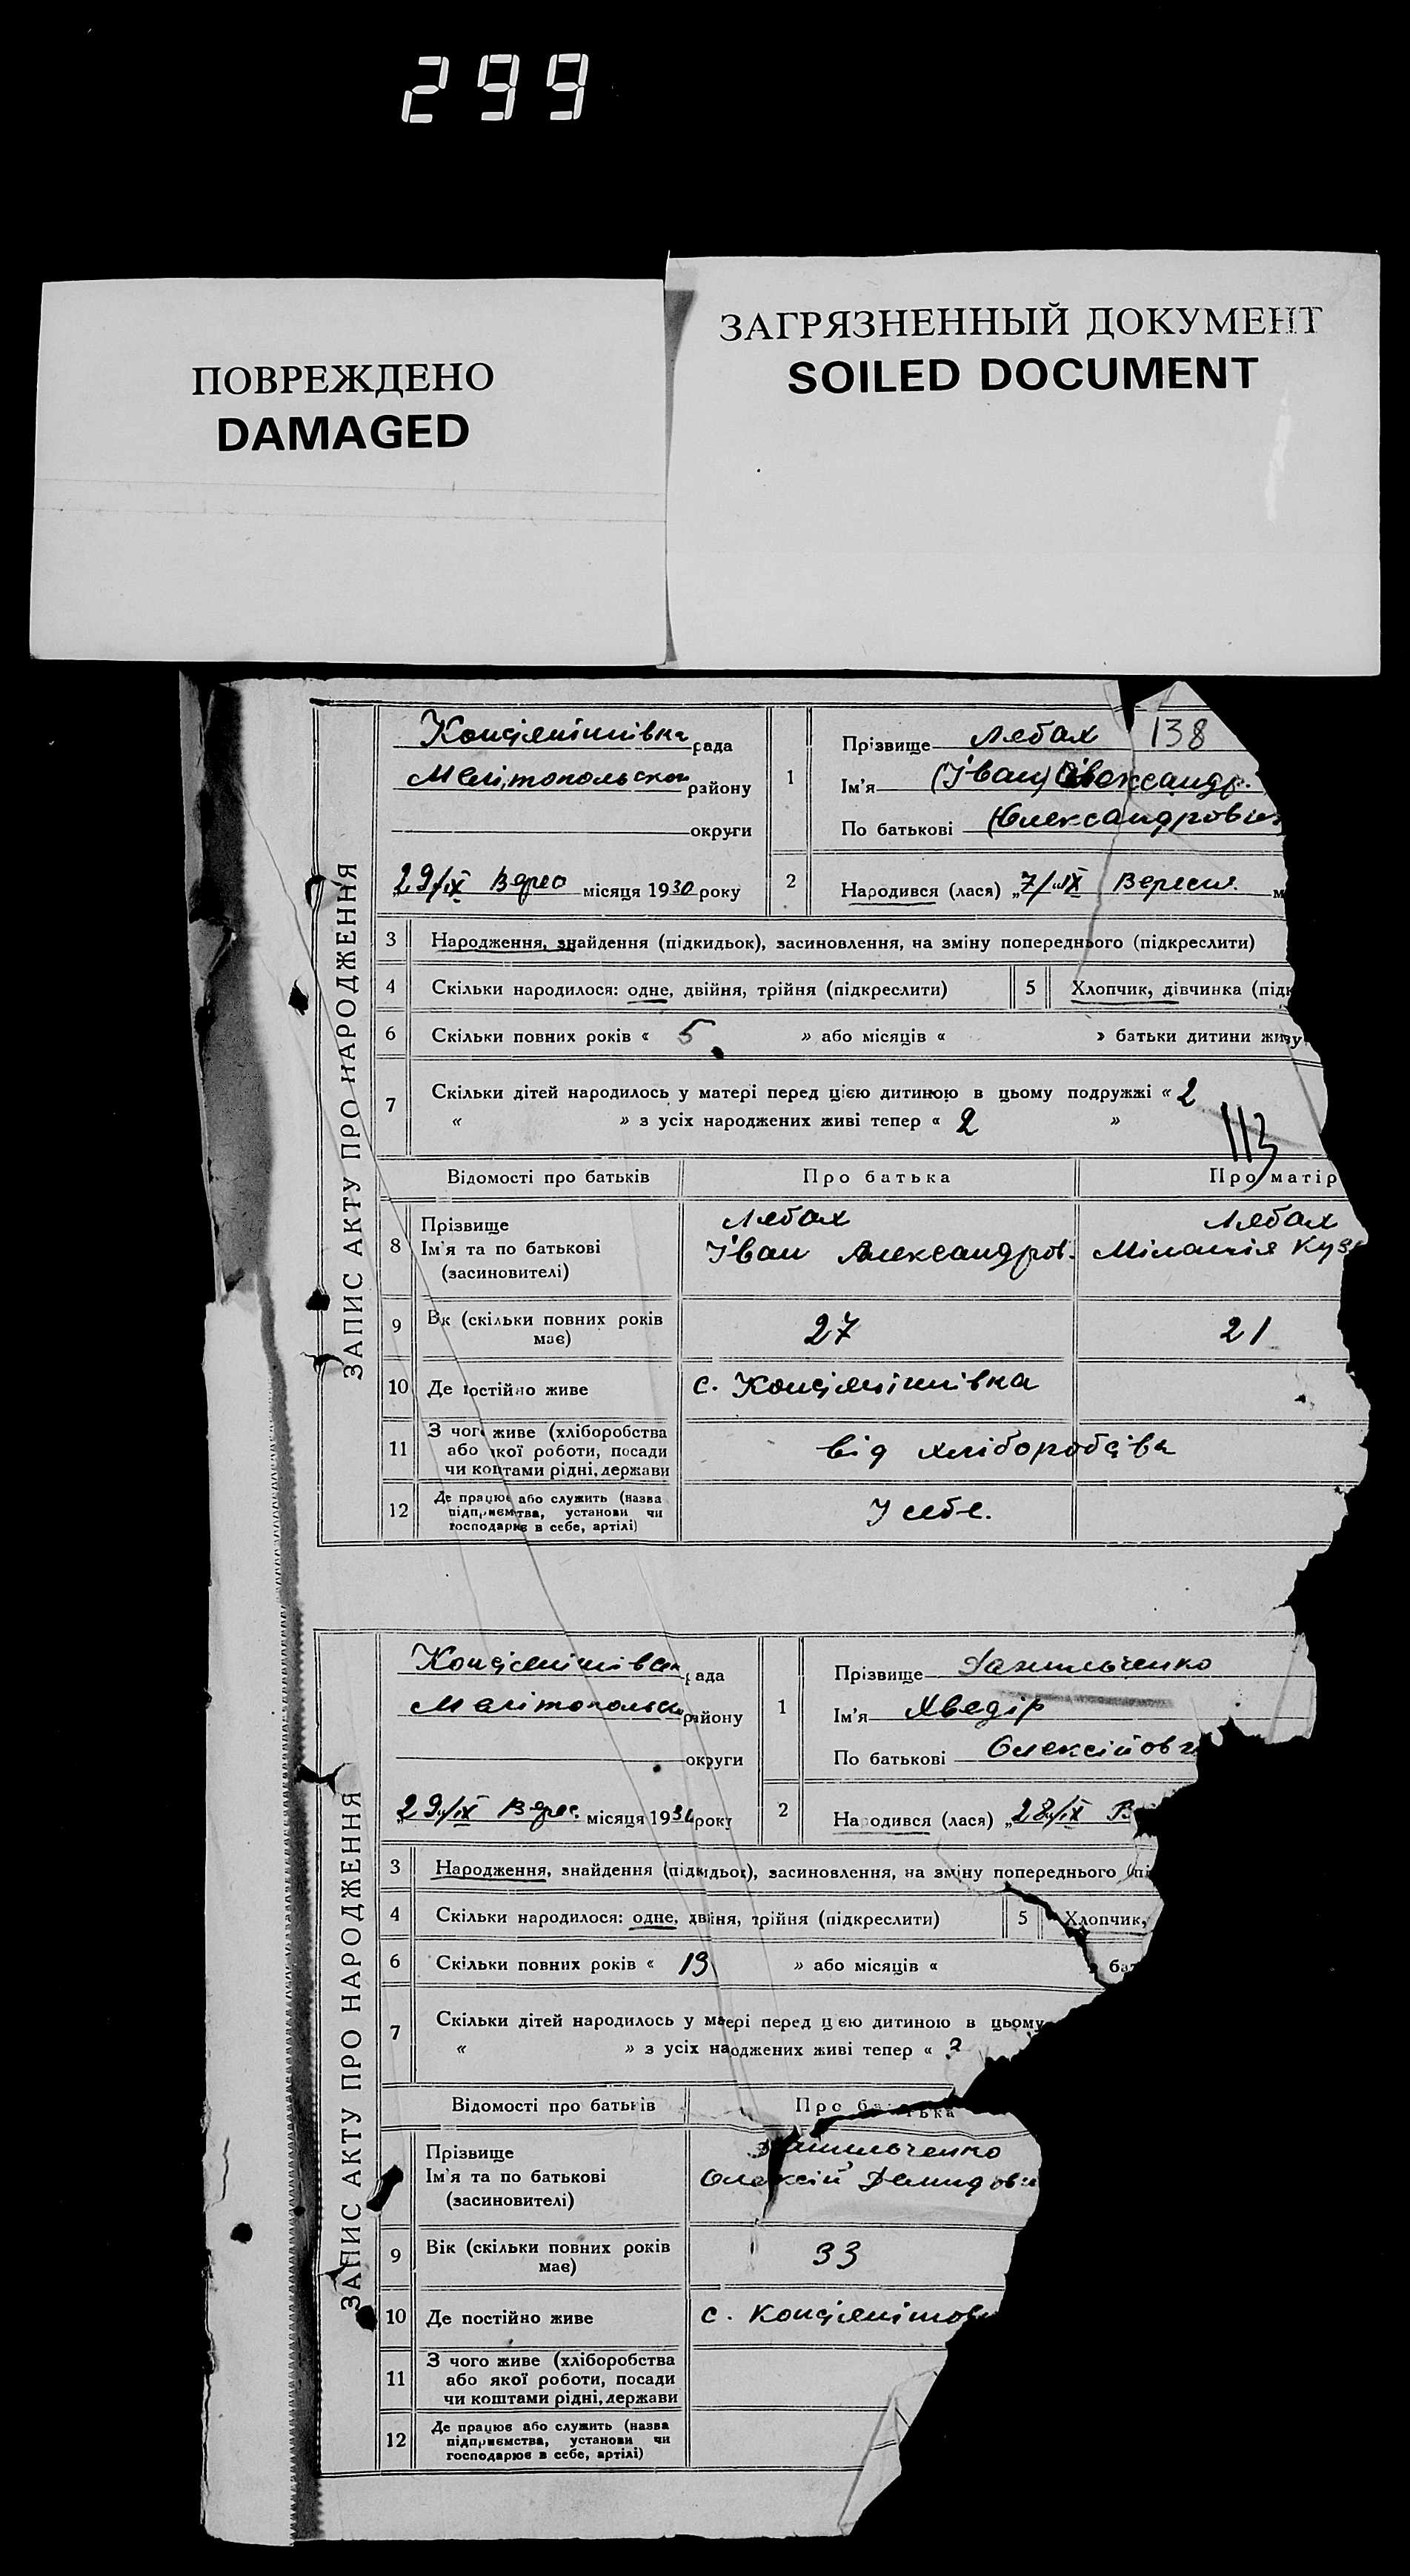 299
ПОВРЕЖДЕНО
DAMAGED
ЗАГРЯЗНЕННЫЙ ДОКУМЕНТ
SOILED DOCUMENT
138
ЗАПИС АКТУ ПРО НАРОДЖЕННЯ
рада
Мелітопольськ району
округи
29/IX Верес місяця 1930 року
1 Прізвище Лебах
Ім'я (Іван) Олександр.
По батькові (Олександрович
2 Народився (лася) „7/IX Вересня м
3 Народження, знайдення (підкидьок), засиновлення, на зміну попереднього (підкреслити)
4 Скільки народилося: одне, двійня, трійня (підкреслити) 5 Хлопчик, дівчинка (підк
6 Скільки повних років « 5 » або місяців « » батьки дитини живу
7 Скільки дітей народилось у матері перед цією дитиною в цьому подружжі « 2
« » з усіх народжених живі тепер « 2 »
113
Відомості про батьків Про батька Про матір
8 Прізвище Лебах Лебах
Ім'я та по батькові Іван Александров.
(засиновителі)
9 Вік (скільки повних років 27 21
має)
10 Де постійно живе с.
11 З чого живе (хліборобства
або якої роботи, посади від хліборобства
чи коштами рідні, держави
12 Де працює або служить (назва
підприємтва, установи чи У себе.
господарює в себе, артілі)
ЗАПИС АКТУ ПРО НАРОДЖЕННЯ
рада
Мелітопольськ району
округи
29/IX Верес. місяця 1930 року
1 Прізвище Данильченко
Ім'я Хведір
По батькові Олексійович
2 Народився (лася) „28/IX В
3 Народження, знайдення (підкидьок), засиновлення, на зміну попереднього (пі
4 Скільки народилося: одне, двійня, трійня (підкреслити) 5 Хлопчик,
6 Скільки повних років « 13 » або місяців « бат
7 Скільки дітей народилось у матері перед цією дитиною в цьому
« » з усіх народжених живі тепер «
Відомості про батьків Про батька
8 Прізвище Данильченко
Ім'я та по батькові Олексій Демидов
(засиновителі)
9 Вік (скільки повних років 33
має)
10 Де постійно живе с.
11 З чого живе (хліборобства
або якої роботи, посади
чи коштами рідні, держави
12 Де працює або служить (назва
підприємства, установи чи
господарює в себе, артілі)